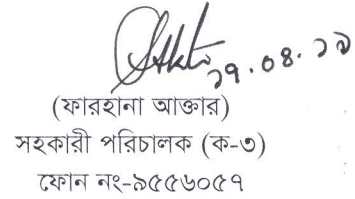 ১৭.০৪.১৯
(ফারহানা আক্তার)
সহকারী পরিচালক (ক-৩)
ফোন নং-৯৫৫৬০৫৭